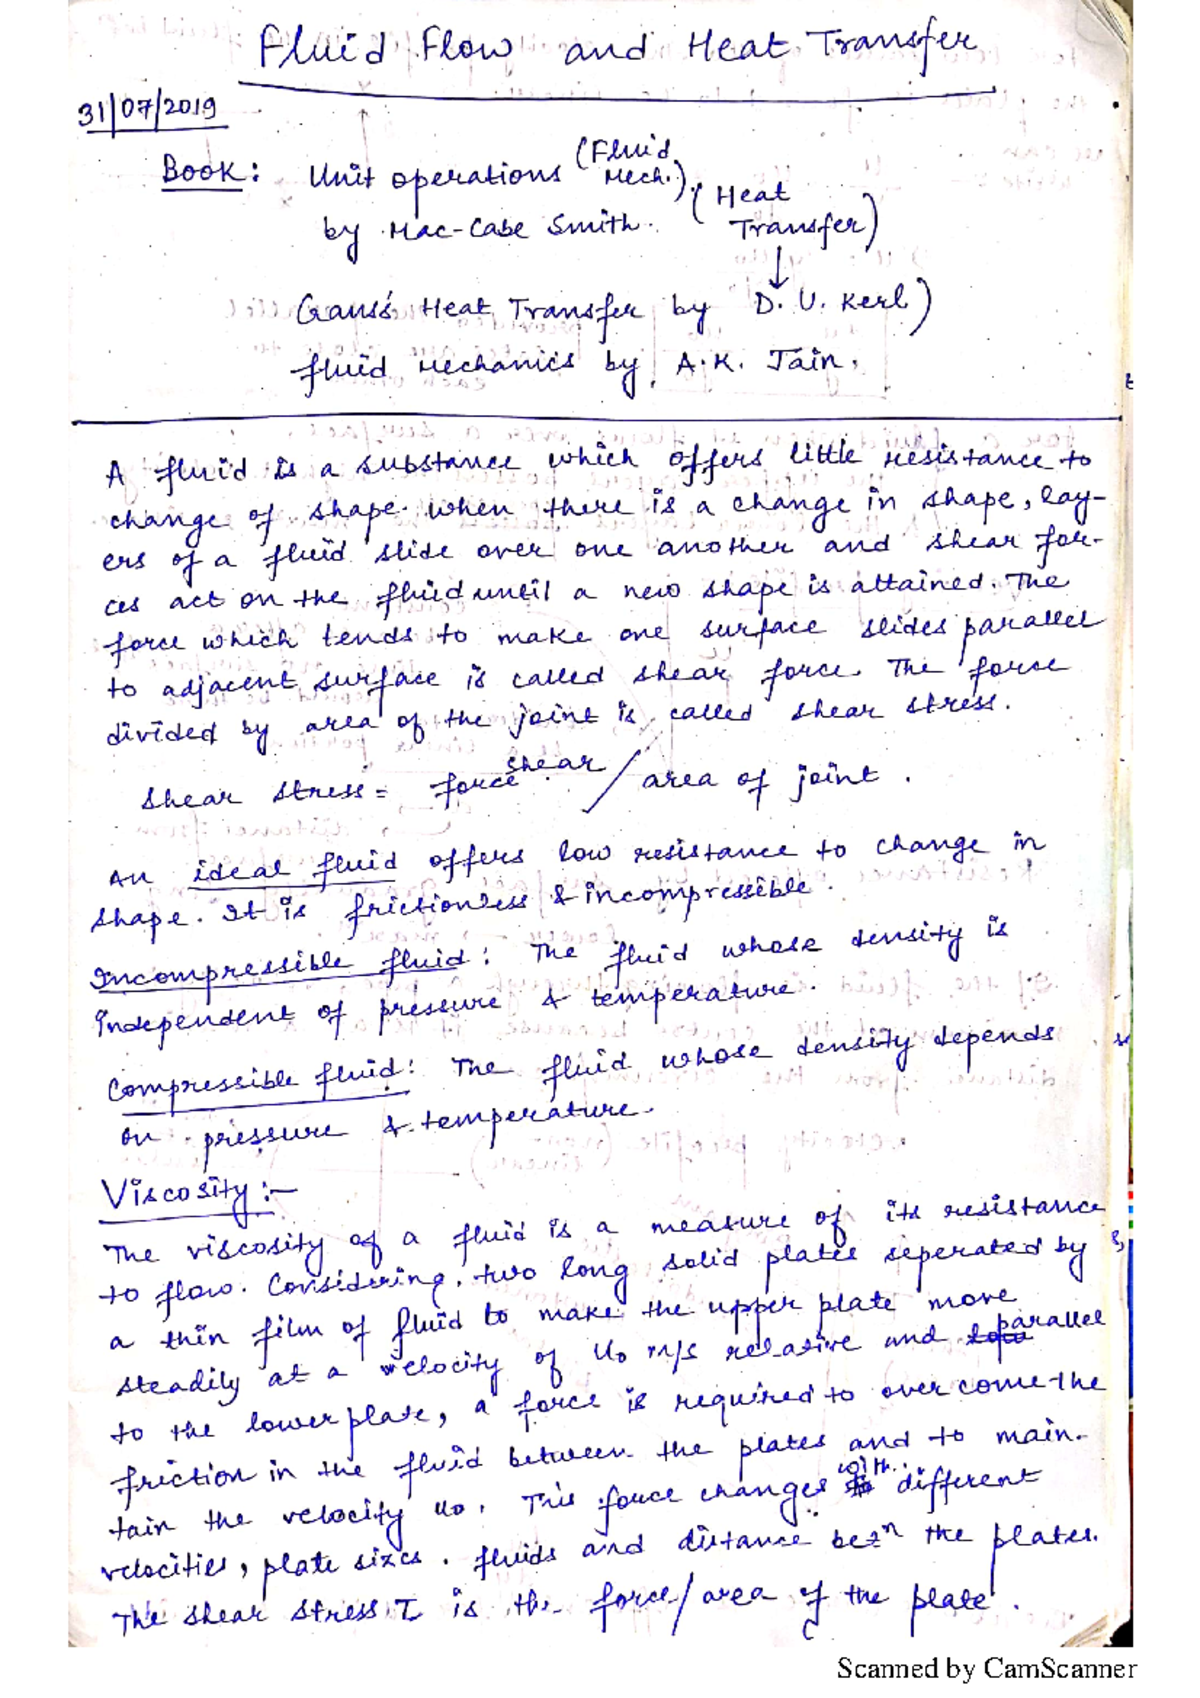 Fluid Flow and Heat Transfer
31/07/2019
Book: Unit operations (Fluid Mech.),
by Mac-Cabe Smith. (Heat Transfer)
↓
Gauss's Heat Transfer by D. U. Kerl)
fluid Mechanics by A.K. Jain.
A fluid is a substance which offers little resistance to
change of shape. when there is a change in shape, lay-
ers of a fluid slide over one another and shear for-
ces act on the fluid until a new shape is attained. The
force which tends to make one surface slides parallel
to adjacent surface is called shear force. The force
divided by area of the joint is called shear stress.
shear stress = force shear / area of joint.
An ideal fluid offers low resistance to change in
shape. It is frictionless & incompressible.
Incompressible fluid: The fluid whose density is
independent of pressure & temperature.
Compressible fluid: The fluid whose density depends
on pressure & temperature.
Viscosity:-
The viscosity of a fluid is a measure of its resistance
to flow. Considering, two long solid plates seperated by
a thin film of fluid to make the upper plate move
steadily at a velocity of u₀ m/s relative and parallel
to the lower plate, a force is required to overcome the
friction in the fluid between the plates and to main-
tain the velocity u₀. This force changes with different
velocities, plate sizes. fluids and distance betⁿ the plates.
The shear stress τ is the force/area of the plate.
Scanned by CamScanner